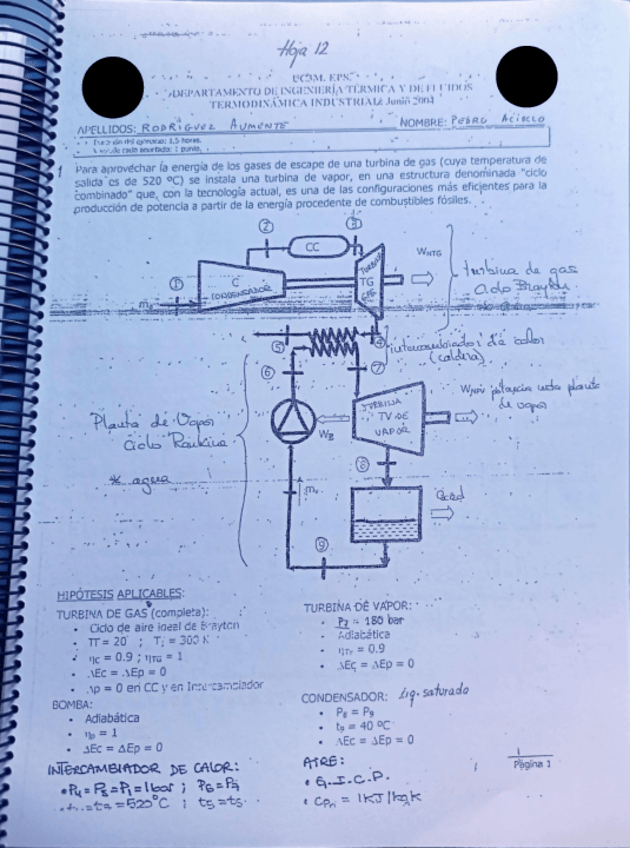 Hoja 12
UCOM. EPS.
DEPARTAMENTO DE INGENIERÍA TÉRMICA Y DE FLUIDOS
TERMODINÁMICA INDUSTRIAL: Junio
APELLIDOS: RODRÍGUEZ AUMENTE NOMBRE: PEDRO ACISCLO
Duración del ejercicio: 1,5 horas.
Valor de cada apartado: 1 punto.
1 Para aprovechar la energía de los gases de escape de una turbina de gas (cuya temperatura de
salida es de 520 ºC) se instala una turbina de vapor, en una estructura denominada "ciclo
combinado" que, con la tecnología actual, es una de las configuraciones más eficientes para la
producción de potencia a partir de la energía procedente de combustibles fósiles.
2 CC 3
WNTG
1 C TURBINA TG
turbina de gas
ciclo Brayton
5 4 intercambiador de calor
(caldera)
6 7
Planta de Vapor
Ciclo Rankine
* agua
WB
TURBINA
TV DE
VAPOR
potencia neta planta
de vapor
8
9
HIPÓTESIS APLICABLES:
TURBINA DE GAS (completa):
• Ciclo de aire ideal de Brayton
• Π = 20 ; T1 = 300 K
• ηC = 0.9 ; ηTG = 1
• ΔEc = ΔEp = 0
• Δp = 0 en CC y en Intercambiador
BOMBA:
• Adiabática
• ηB = 1
• ΔEc = ΔEp = 0
INTERCAMBIADOR DE CALOR:
• P4 = P5 = P1 = 1 bar ; P6 = P7
= 520°C ;
TURBINA DE VAPOR:
• P7 = 180 bar
• Adiabática
• ηTV = 0.9
• ΔEc = ΔEp = 0
CONDENSADOR: Liq. saturado
• P8 = P9
• t9 = 40 ºC
• ΔEc = ΔEp = 0
AIRE:
• G.I.C.P.
• CPa = 1 kJ/kgK
1
Página 1